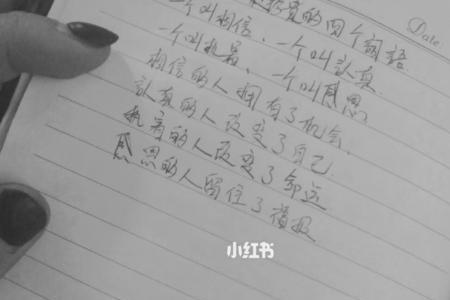 的四个詞語
一个叫相信、一个叫认真
一个叫执着、一个叫感恩
相信的人拥有了机会、
认真的人改变了自己
执着的人改变了命运
感恩的人留住了福报
Date
小红书